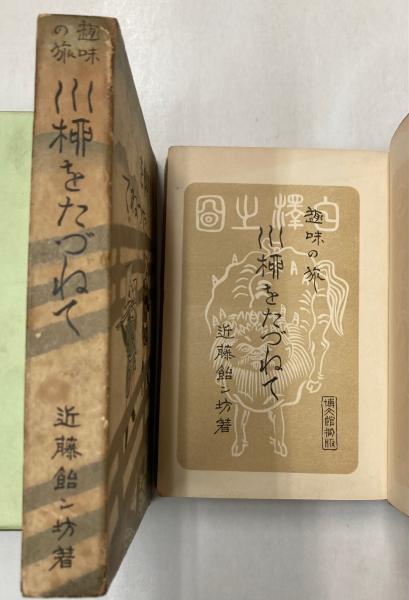 趣味の旅
川柳をたづねて
近藤飴ン坊著
白澤之圖
趣味の旅
川柳をたづねて
近藤飴ン坊著
博文館御版